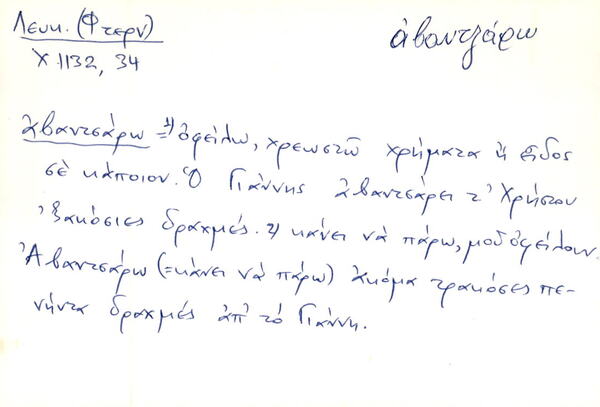 Λευκ. (Φτερν)
Χ 1132, 34
ἀβαντζάρω
ἀβαντσάρω = 1) ὀφείλω, χρεωστῶ χρήματα ἤ εἶδος
σὲ κάποιον. Ὁ Γιάννης ἀβαντσάρει τ' Χρήστου
'ξακόσιες δραχμές. 2) κάνει νὰ πάρω, μοῦ ὀφείλουν.
Ἀβαντσάρω (= κάνει νὰ πάρω) ἀκόμα τρακόσες πε-
νήντα δραχμές ἀπ' τὸ Γιάννη.